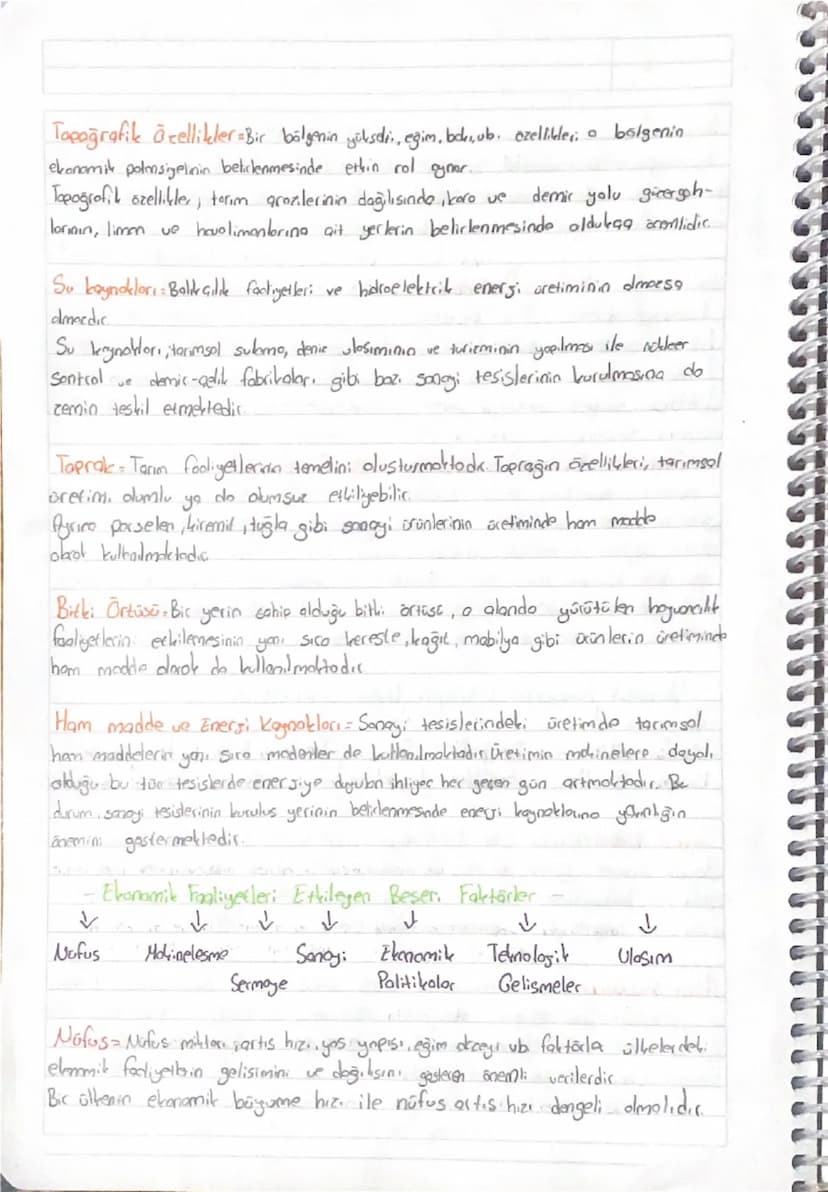 Topoğrafik Özellikler = Bir bölgenin yükselti, eğim, bakı, vb. özellikleri o bölgenin
ekonomik potansiyelinin belirlenmesinde etkin rol oynar.
Topoğrafik özellikler, tarım arazilerinin dağılısında, kara ve demir yolu güzergah-
larının, liman ve havalimanlarına ait yerlerin belirlenmesinde oldukça önemlidir.
Su kaynakları = Balıkçılık faaliyetleri ve hidroelektrik enerji üretiminin olmazsa
olmazdır.
Su kaynakları, tarımsal sulama, deniz ulasımının ve turizminin yapılması ile nükleer
santral ve demir-çelik fabrikaları gibi bazı sanayi tesislerinin kurulmasına da
zemin teskil etmektedir.
Toprak = Tarım faaliyetlerinin temelini olusturmaktadır. Toprağın özellikleri, tarımsal
üretimi olumlu ya da olumsuz etkiliyebilir.
Ayrıca porselen, kiremit, tuğla gibi sanayi ürünlerinin üretiminde ham madde
olarak kullanılmaktadır.
Bitki Örtüsü = Bir yerin sahip olduğu bitki örtüsü, o alanda yürütülen hayvancılık
faaliyetlerini etkilemesinin yanı sıra kereste, kağıt, mobilya gibi ürünlerin üretiminde
ham madde olarak da kullanılmaktadır.
Ham madde ve Enerji Kaynakları = Sanayi tesislerindeki üretimde tarımsal
ham maddelerin yanı sıra madenler de kullanılmaktadır. Üretimin makinelere dayalı
olduğu bu tür tesislerde enerjiye duyulan ihtiyaç her geçen gün artmaktadır. Bu
durum, sanayi tesislerinin kurulus yerinin belirlenmesinde enerji kaynaklarına yakınlığın
önemini göstermektedir.
- Ekonomik Faaliyetleri Etkileyen Beseri Faktörler -
↓ ↓ ↓ ↓ ↓ ↓ ↓
Nüfus Makinelesme Sanayi Ekonomik Teknolojik Ulasım
Sermaye Politikalar Gelismeler
Nüfus = Nüfus miktarı, artıs hızı, yas yapısı, eğim düzeyi vb. faktörler ülkelerdeki
ekonomik faaliyetlerin gelisimini ve dağılısını gösteren önemli verilerdir.
Bir ülkenin ekonomik büyüme hızı ile nüfus artıs hızı dengeli olmalıdır.